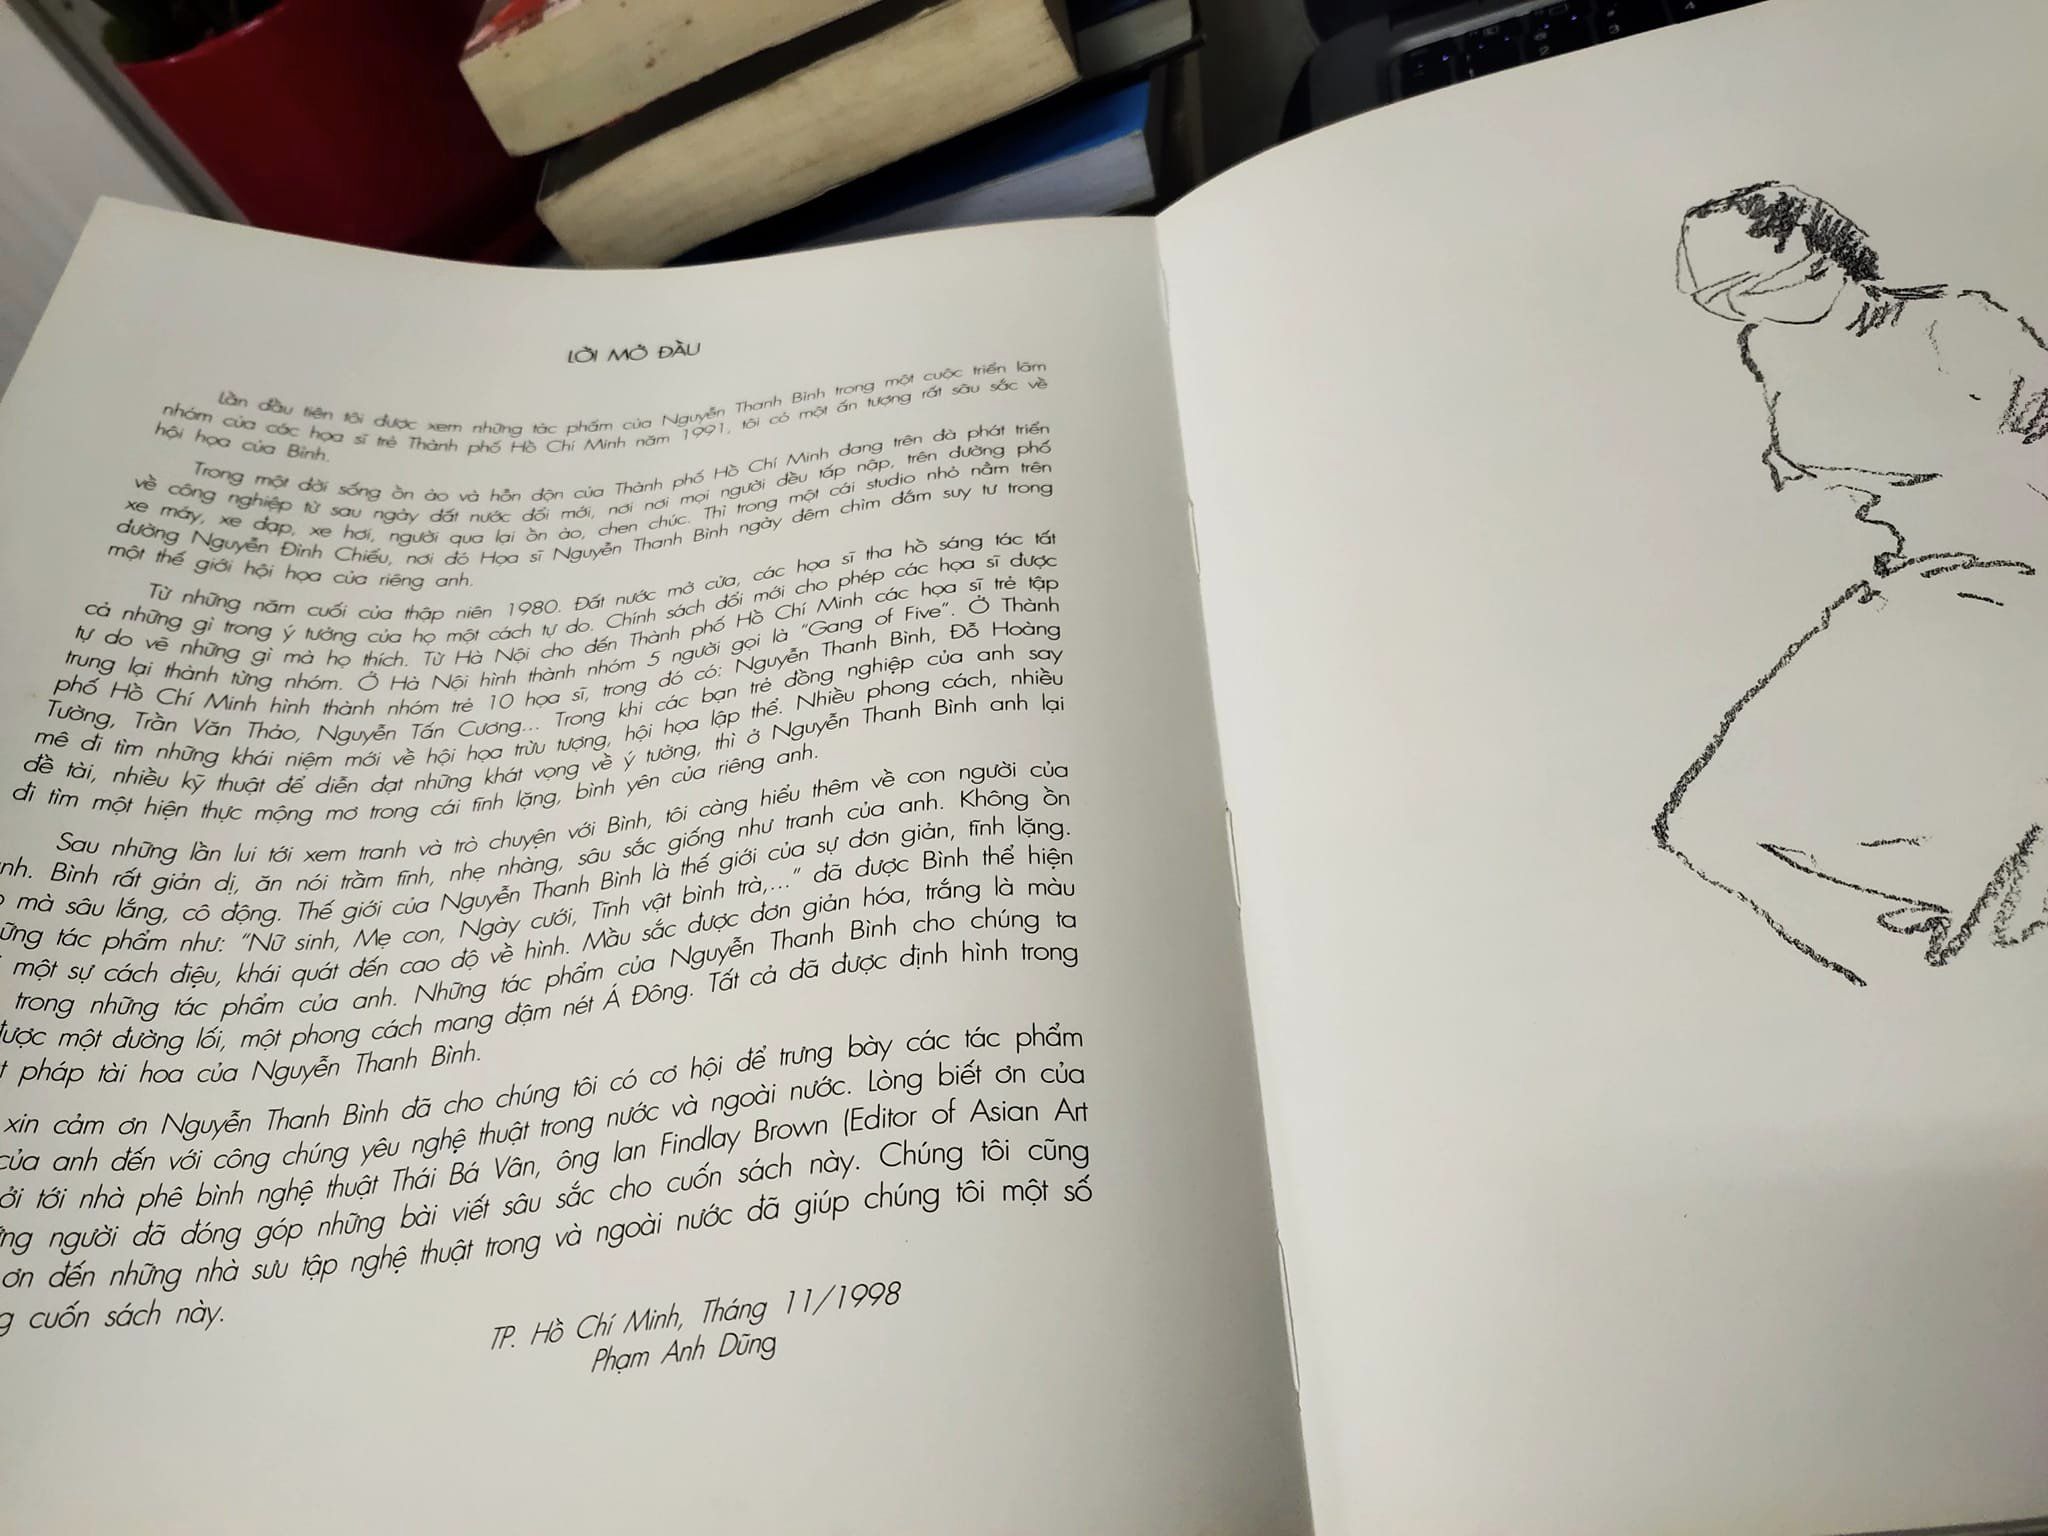 LỜI MỞ ĐẦU
Lần đầu tiên tôi được xem những tác phẩm của Nguyễn Thanh Bình trong một cuộc triển lãm
nhóm của các họa sĩ trẻ Thành phố Hồ Chí Minh năm 1991, tôi có một ấn tượng rất sâu sắc về
hội họa của Bình.
Trong một đời sống ồn ào và hỗn độn của Thành phố Hồ Chí Minh đang trên đà phát triển
về công nghiệp từ sau ngày đất nước đổi mới, nơi nơi mọi người đều tấp nập, trên đường phố
xe máy, xe đạp, xe hơi, người qua lại ồn ào, chen chúc. Thì trong một cái studio nhỏ nằm trên
đường Nguyễn Đình Chiểu, nơi đó Họa sĩ Nguyễn Thanh Bình ngày đêm chìm đắm suy tư trong
một thế giới hội họa của riêng anh.
Từ những năm cuối của thập niên 1980. Đất nước mở cửa, các họa sĩ tha hồ sáng tác tất
cả những gì trong ý tưởng của họ một cách tự do. Chính sách đổi mới cho phép các họa sĩ được
tự do vẽ những gì mà họ thích. Từ Hà Nội cho đến Thành phố Hồ Chí Minh các họa sĩ trẻ tập
trung lại thành từng nhóm. Ở Hà Nội hình thành nhóm 5 người gọi là "Gang of Five". Ở Thành
phố Hồ Chí Minh hình thành nhóm trẻ 10 họa sĩ, trong đó có: Nguyễn Thanh Bình, Đỗ Hoàng
Tường, Trần Văn Thảo, Nguyễn Tấn Cương... Trong khi các bạn trẻ đồng nghiệp của anh say
mê đi tìm những khái niệm mới về hội họa trừu tượng, hội họa lập thể. Nhiều phong cách, nhiều
đề tài, nhiều kỹ thuật để diễn đạt những khát vọng về ý tưởng, thì ở Nguyễn Thanh Bình anh lại
đi tìm một hiện thực mộng mơ trong cái tĩnh lặng, bình yên của riêng anh.
Sau những lần lui tới xem tranh và trò chuyện với Bình, tôi càng hiểu thêm về con người của
nh. Bình rất giản dị, ăn nói trầm tĩnh, nhẹ nhàng, sâu sắc giống như tranh của anh. Không ồn
mà sâu lắng, cô động. Thế giới của Nguyễn Thanh Bình là thế giới của sự đơn giản, tĩnh lặng.
ững tác phẩm như: "Nữ sinh, Mẹ con, Ngày cưới, Tĩnh vật bình trà,..." đã được Bình thể hiện
một sự cách điệu, khái quát đến cao độ về hình. Mầu sắc được đơn giản hóa, trắng là màu
trong những tác phẩm của anh. Những tác phẩm của Nguyễn Thanh Bình cho chúng ta
được một đường lối, một phong cách mang đậm nét Á Đông. Tất cả đã được định hình trong
t pháp tài hoa của Nguyễn Thanh Bình.
xin cảm ơn Nguyễn Thanh Bình đã cho chúng tôi có cơ hội để trưng bày các tác phẩm
của anh đến với công chúng yêu nghệ thuật trong nước và ngoài nước. Lòng biết ơn của
ởi tới nhà phê bình nghệ thuật Thái Bá Vân, ông Ian Findlay Brown (Editor of Asian Art
ng người đã đóng góp những bài viết sâu sắc cho cuốn sách này. Chúng tôi cũng
ơn đến những nhà sưu tập nghệ thuật trong và ngoài nước đã giúp chúng tôi một số
g cuốn sách này.
TP. Hồ Chí Minh, Tháng 11/1998
Phạm Anh Dũng